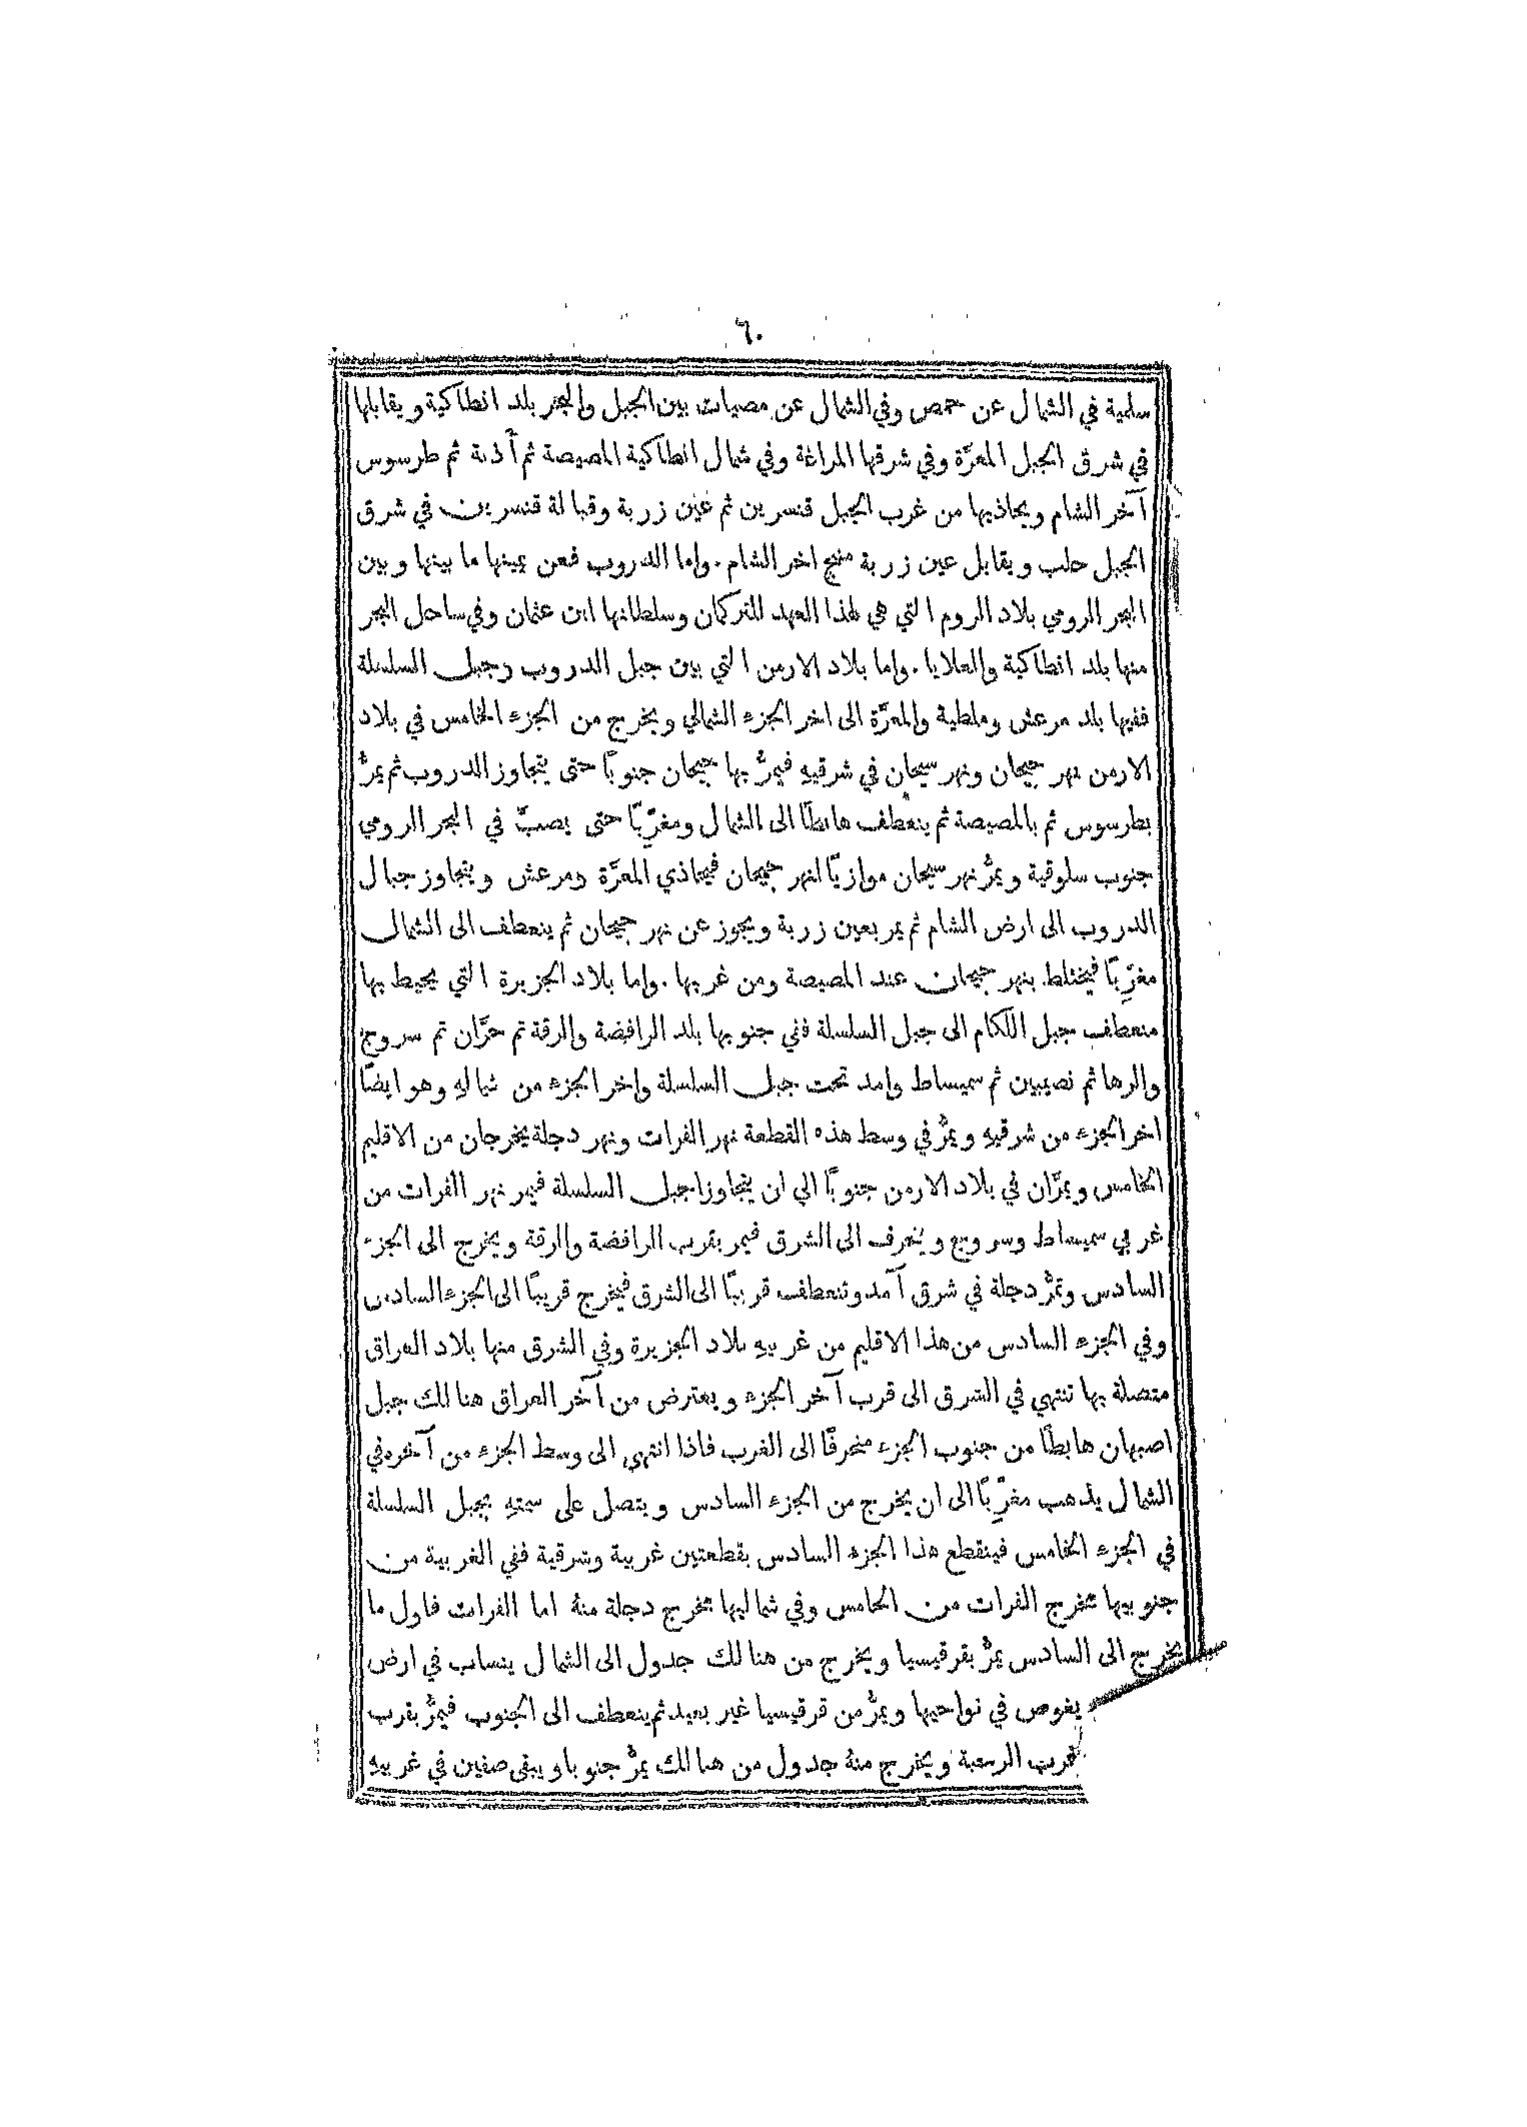 ٦٠
سلمية في الشمال عن حمص وفي الشمال عن مصيات بين الجبل والبحر بلد انطاكية ويقابلها
في شرق الجبل المعرّة وفي شرقها المراغة وفي شمال انطاكية المصيصة ثم آذنة ثم طرسوس
آخر الشام ويحاذيها من غرب الجبل قنسرين ثم عين زربة وقبالة قنسرين في شرق
الجبل حلب ويقابل عين زربة منبج اخر الشام . واما الدروب فعن يمينها ما بينها وبين
البحر الرومي بلاد الروم التي هي لهذا العهد للتركمان وسلطانها ابن عثمان وفي ساحل البحر
منها بلد انطاكية والعلايا . واما بلاد الارمن التي بين جبل الدروب وجبل السلسلة
ففيها بلد مرعش وملطية والمعرّة الى اخر الجزء الشمالي ويخرج من الجزء الخامس في بلاد
الارمن نهر جيحان ونهر سيحان في شرقيه فيمرُّ بها جيحان جنوبًا حتى يتجاوز الدروب ثم يمرُّ
بطرسوس ثم بالمصيصة ثم ينعطف هابطًا الى الشمال ومغرّبًا حتى يصبّ في البحر الرومي
جنوب سلوقية ويمرُّ نهر سيحان موازيًا لنهر جيحان فيحاذي المعرَّة ومرعش ويتجاوز جبال
الدروب الى ارض الشام ثم يمر بعين زربة ويجوز عن نهر جيحان ثم ينعطف الى الشمال
مغرّبًا فيختلط بنهر جيحان عند المصيصة ومن غربها . واما بلاد الجزيرة التي يحيط بها
منعطف جبل اللكام الى جبل السلسلة ففي جنوبها بلد الرافضة والرقة ثم حرَّان ثم سروج
والرها ثم نصيبين ثم سميساط وامد تحت جبل السلسلة واخر الجزء من شماله وهو ايضًا
اخر الجزء من شرقيه ويمرُّ في وسط هذه القطعة نهر الفرات ونهر دجلة يخرجان من الاقليم
الخامس ويمرّان في بلاد الارمن جنوبًا الى ان يتجاوزا جبل السلسلة فيمر نهر الفرات من
غربي سميساط وسروج وينحرف الى الشرق فيمر بقرب الرافضة والرقة ويخرج الى الجزء
السادس وتمرُّ دجلة في شرق آمد وتنعطف قريبًا الى الشرق فيخرج قريبًا الى الجزء السادس
وفي الجزء السادس من هذا الاقليم من غربيه بلاد الجزيرة وفي الشرق منها بلاد العراق
متصلة بها تنتهي في الشرق الى قرب آخر الجزء ويعترض من آخر العراق هنالك جبل
اصبهان هابطًا من جنوب الجزء منحرفًا الى الغرب فاذا انتهى الى وسط الجزء من آخره في
الشمال يذهب مغرّبًا الى ان يخرج من الجزء السادس ويتصل على سمته بجبل السلسلة
في الجزء الخامس فينقطع هذا الجزء السادس بقطعتين غربية وشرقية ففي الغربية من
جنوبيها مخرج الفرات من الخامس وفي شماليها مخرج دجلة منهُ اما الفرات فاول ما
يخرج الى السادس يمرُّ بقرقيسيا ويخرج من هنالك جدول الى الشمال ينساب في ارض
يغوص في نواحيها ويمرُّ من قرقيسيا غير بعيد ثم ينعطف الى الجنوب فيمرُّ بقرب
غرب الرحبة ويخرج منهُ جدول من هنالك يمرُّ جنوبا ويبقى صفين في غربيه